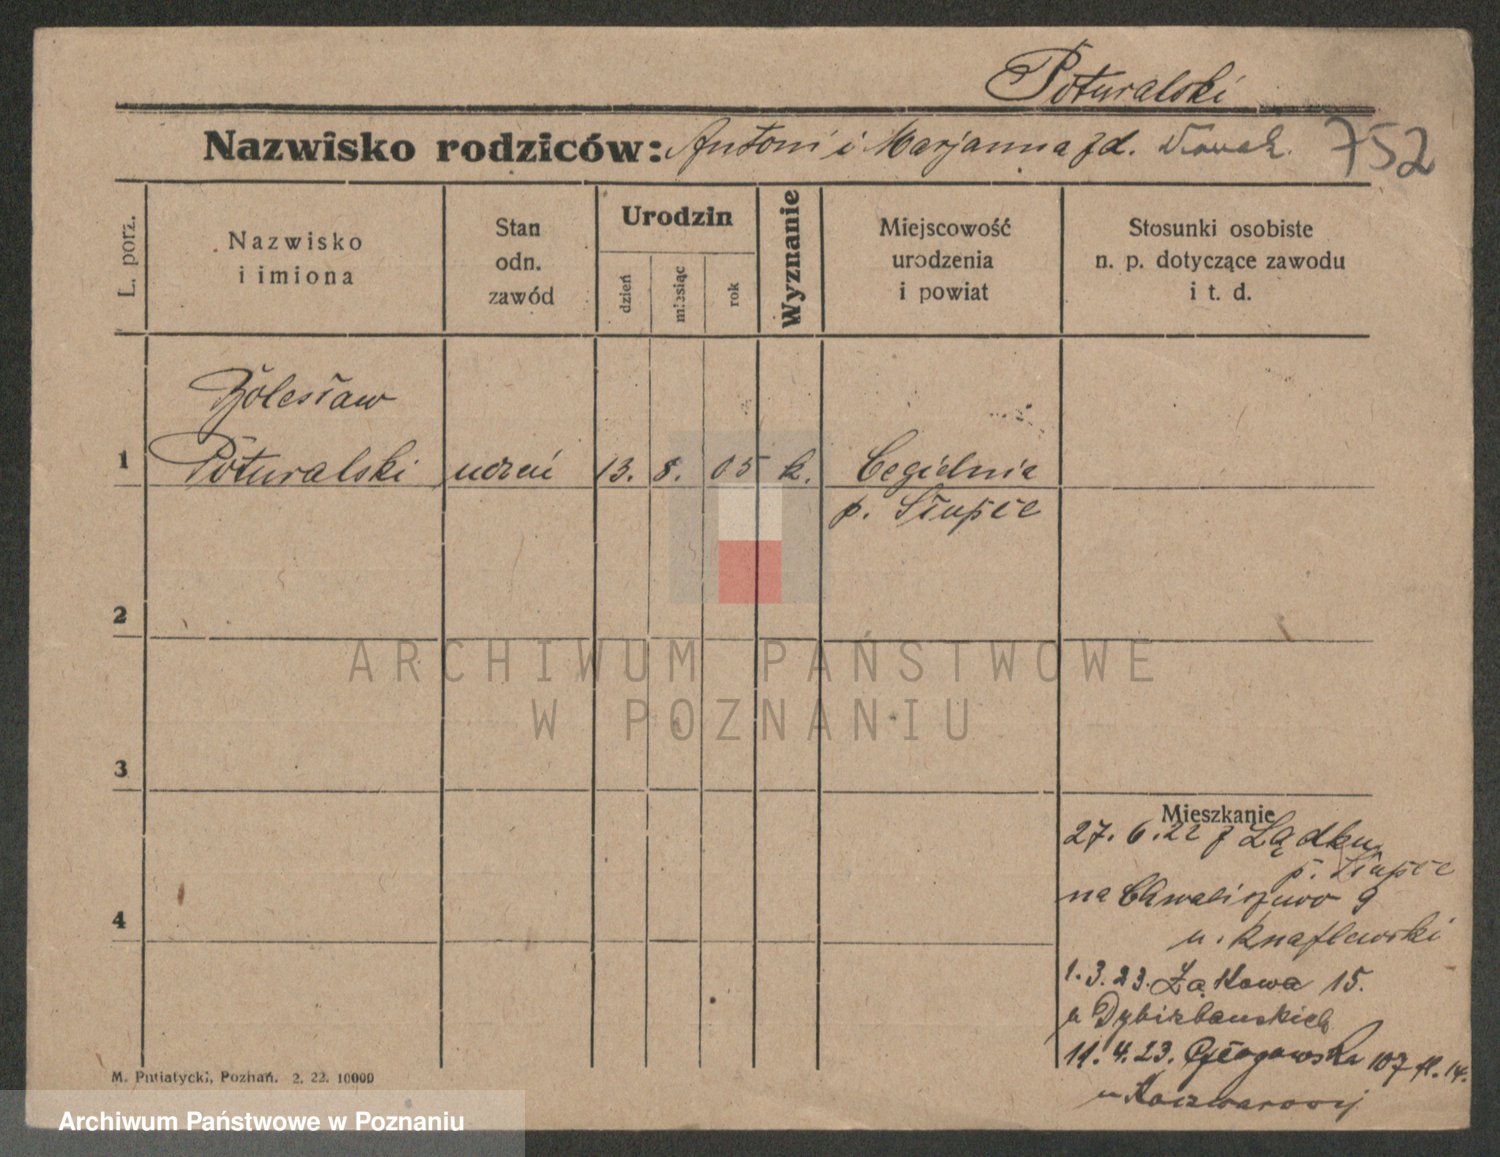 Poturalski
Nazwisko rodziców: Antoni i Marjanna zd. Nowak. 752
L. porz.
Nazwisko
i imiona
Stan
odn.
zawód
Urodzin
dzień
miesiąc
rok
Wyznanie
Miejscowość
urodzenia
i powiat
Stosunki osobiste
n. p. dotyczące zawodu
i t. d.
Bolesław
1 Poturalski uczeń 13. 8. 05 k. Cegielnia
p. Słupce
2
3
4
Mieszkanie
27. 6. 22 z Lądku
p. Słupce
na Chwaliszewo 9
u. Knaflewski
1. 3. 23. Łąkowa 15.
u
11. 4. 23. Głogowska 107 II. 14.
u
M. Putiatycki, Poznań. 2. 22. 10000
ARCHIWUM PAŃSTWOWE
W POZNANIU
Archiwum Państwowe w Poznaniu